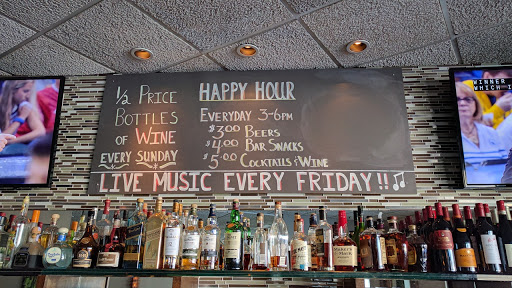 ½ PRICE
BOTTLES
OF WINE
EVERY SUNDAY
HAPPY HOUR
EVERYDAY 3-6PM
$3.00 BEERS
$4.00 BAR SNACKS
$5.00 COCKTAILS & WINE
LIVE MUSIC EVERY FRIDAY!! ♫
WINNER
WHICH I